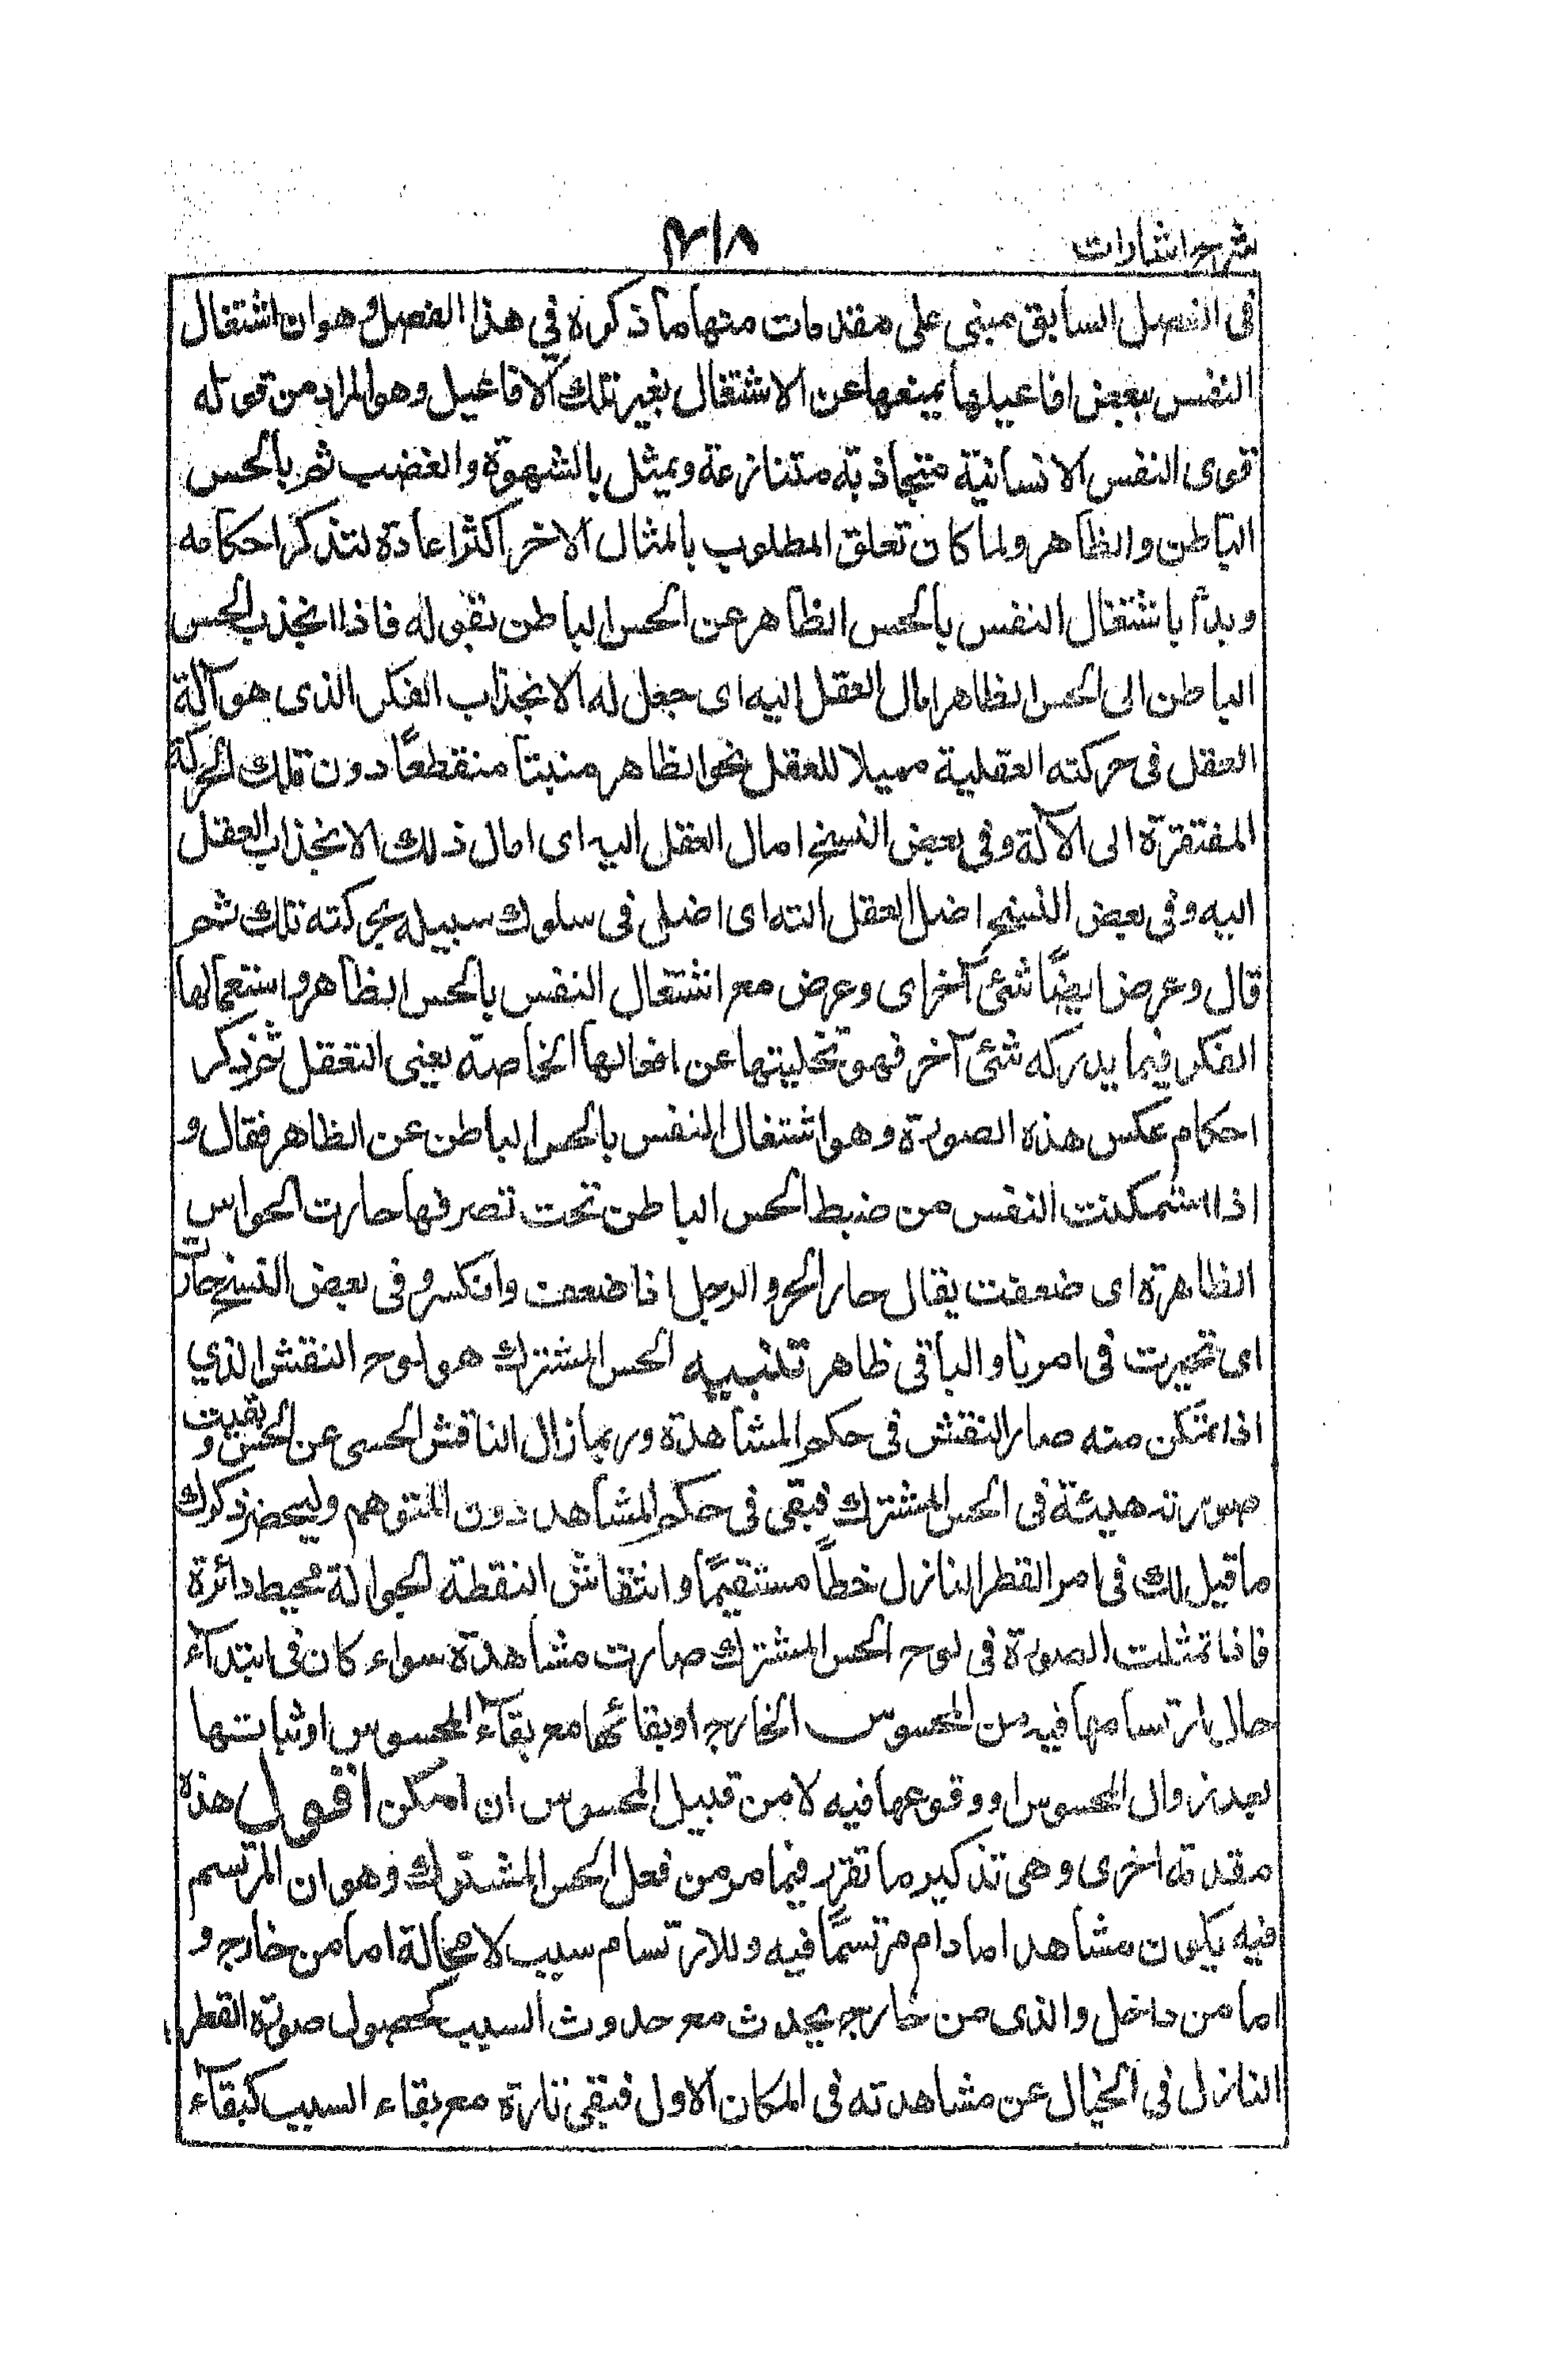 شرح اشارات
٣١٨
فى الفصل السابق مبنى على مقدمات منها ما ذكره في هذا الفصل وهو ان اشتغال
النفس ببعض افاعيلها يمنعها عن الاشتغال بغير تلك الافاعيل وهو المراد من قوله
قوى النفس الانسانية متجاذبة متنازعة ويمثل بالشهوة والغضب ثم بالحس
الباطن والظاهر ولما كان تعلق المطلوب بالمثال الاخر اكثر اعادة لتذكر احكامه
وبدأ باشتغال النفس بالحس الظاهر عن الحس الباطن بقوله فاذا انجذب الحس
الباطن الى الحس الظاهر امال العقل اليه اى جعل له الانجذاب الفكر الذى هو آلة
العقل فى حركته العقلية مميلا للعقل نحو الظاهر منبتا منقطعًا دون تلك الحركة
المفتقرة الى الآلة وفى بعض النسخ امال العقل اليه اى امال ذلك الانجذاب العقل
اليه وفى بعض النسخ اضل العقل الته اى اضل فى سلوك سبيله بحركته تلك ثم
قال وعرض ايضًا شئ آخر اى وعرض مع اشتغال النفس بالحس الظاهر واستعمالها
الفكر فيما يدركه شئ آخر فهو تخليتها عن افعالها الخاصة يعنى التعقل ثم ذكر
احكام عكس هذه الصورة وهو اشتغال النفس بالحس الباطن عن الظاهر فقال و
اذا استمكنت النفس من ضبط الحس الباطن تحت تصرفها حارت الحواس
الظاهرة اى ضعفت يقال حار الحر والرجل اذا ضعف وانكسر وفى بعض النسخ حارت
اى تحيرت فى امرنا والباقى ظاهر تنبيه الحس المشترك هو لوح النقش الذي
اذا تمكن منه صار النقش فى حكم المشاهدة وربما زال الناقش الحسى عن الحس وبقيت
صورته هيئة فى الحس المشترك فبقى فى حكم المشاهد دون المتوهم وليحضر ذكرك
ما قيل لك فى امر القطر النازل خطاً مستقيمًا وانتقاش النقطة الجوالة محيط دائرة
فاذا تمثلت الصورة فى لوح الحس المشترك صارت مشاهدة سواء كان فى ابتداء
حال ارتسامها فيه من المحسوس الخارج او بقائها مع بقاء المحسوس او ثباتها
بعد زوال المحسوس او وقوعها فيه لا من قبيل المحسوس ان امكن اقول هذه
مقدمة اخرى وهى تذكير ما تقرر فيما مر من فعل الحس المشترك وهو ان المرتسم
فيه يكون مشاهدا ما دام مرتسمًا فيه وللارتسام سبب لا محالة اما من خارج و
اما من داخل والذى من خارج يحدث مع حدوث السبب كحصول صورة القطر
النازل فى الخيال عن مشاهدته فى المكان الاول فتبقى تارة مع بقاء السبب كبقاء